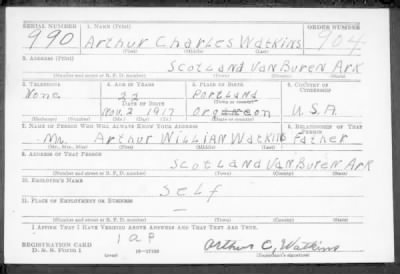 SERIAL NUMBER 1. NAME (Print) ORDER NUMBER
990 Arthur Charles Watkins 904
(First) (Middle) (Last)
2. ADDRESS (Print)
Scotland Van Buren Ark
(Number and street or R. F. D. number) (Town) (County) (State)
3. TELEPHONE 4. AGE IN YEARS 5. PLACE OF BIRTH 6. COUNTRY OF CITIZENSHIP
None 22 Portland
DATE OF BIRTH (Town or county)
Nov. 2 1917 Oregon U.S.A.
(Mo.) (Day) (Yr.) (State or country)
7. NAME OF PERSON WHO WILL ALWAYS KNOW YOUR ADDRESS 8. RELATIONSHIP OF THAT PERSON
Mr. Arthur William Watkins Father
(Mr., Mrs., Miss) (First) (Middle) (Last)
9. ADDRESS OF THAT PERSON
Scotland Van Buren Ark
(Number and street or R. F. D. number) (Town) (County) (State)
10. EMPLOYER'S NAME
Self
11. PLACE OF EMPLOYMENT OR BUSINESS
—
(Number and street or R. F. D. number) (Town) (County) (State)
I AFFIRM THAT I HAVE VERIFIED ABOVE ANSWERS AND THAT THEY ARE TRUE.
REGISTRATION CARD
D. S. S. FORM 1 (over) 16—17105 Arthur C. Watkins
(Registrant's signature)